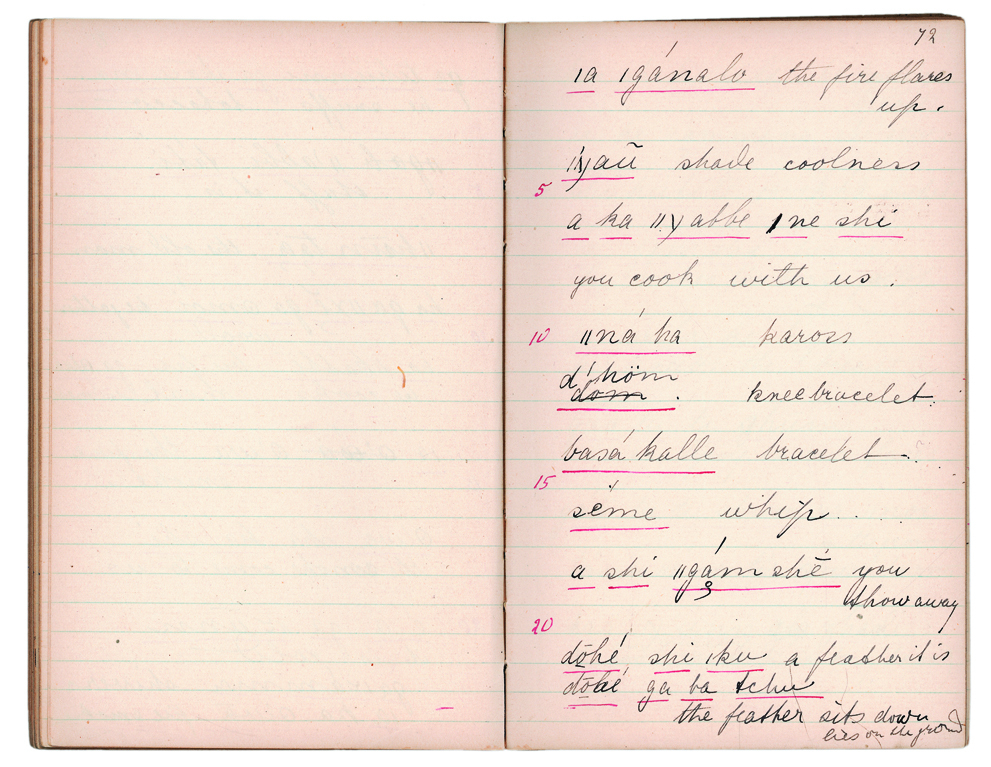 72
ıa ıgánalo the fire flares
up.
aū shade coolness
5
a ka abbe ne shi
you cook with us.
10 ıı ná ka kaross
d'höm
dom . kneebracelet.
basá kalle bracelet-.?
15
séme whip
a shi ııgám shē you
thow away
20
dōhé, shi ıku a feather it is
dōhé ga ba tchu
the feather sits down
lies on the ground